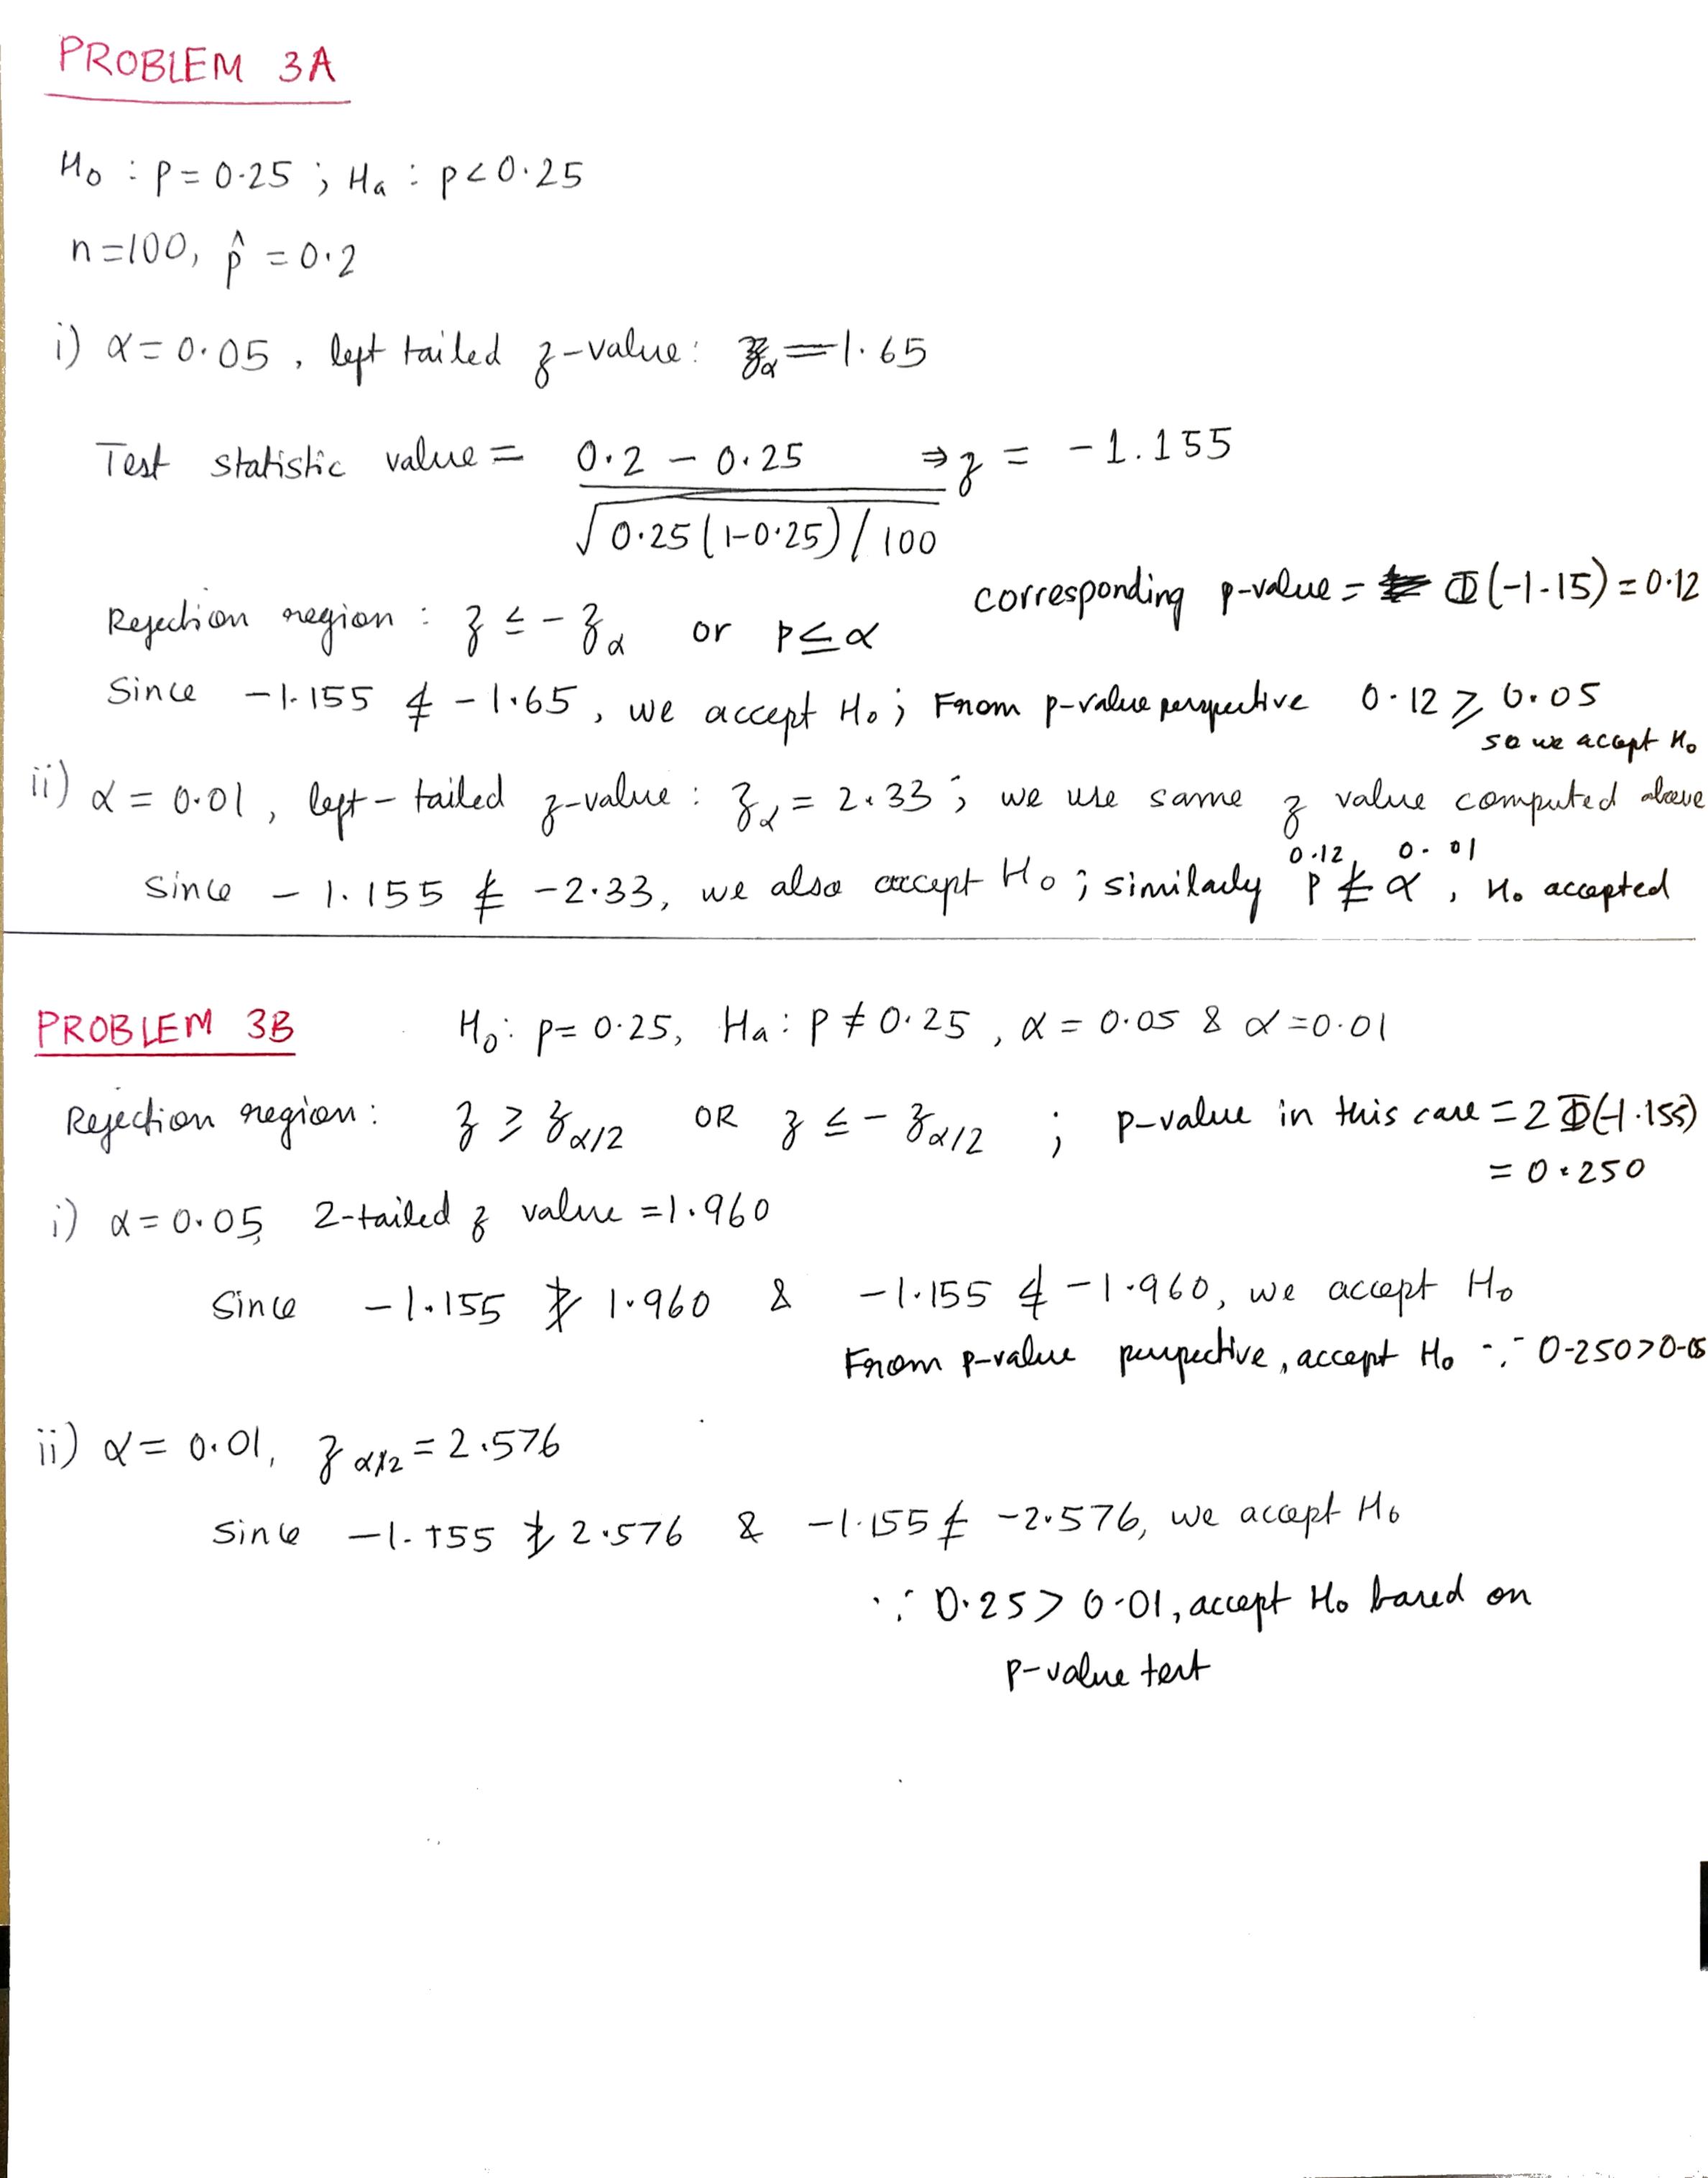 PROBLEM 3A
H₀ : p = 0.25 ; Hₐ : p < 0.25
n=100, p̂ = 0.2
i) α = 0.05, left tailed z-value: z_α = 1.65
Test statistic value = (0.2 - 0.25) / √(0.25(1-0.25)/100) ⇒ z = -1.155
corresponding p-value = Φ(-1.15) = 0.12
Rejection region : z ≤ -z_α or p ≤ α
Since -1.155 ≰ -1.65, we accept H₀; From p-value perspective 0.12 ≥ 0.05
so we accept H₀
ii) α = 0.01, left-tailed z-value : z_α = 2.33 ; we use same z value computed above
0.12 0.01
Since -1.155 ≰ -2.33, we also accept H₀ ; similarly p ≰ α, H₀ accepted
PROBLEM 3B H₀: p = 0.25, Hₐ: p ≠ 0.25, α = 0.05 & α = 0.01
Rejection region: z ≥ z_α/2 OR z ≤ -z_α/2 ; p-value in this case = 2Φ(-1.155)
= 0.250
i) α = 0.05, 2-tailed z value = 1.960
Since -1.155 ≱ 1.960 & -1.155 ≰ -1.960, we accept H₀
From p-value perspective, accept H₀ ∵ 0.250 > 0.05
ii) α = 0.01, z_α/2 = 2.576
Since -1.155 ≱ 2.576 & -1.155 ≰ -2.576, we accept H₀
∵ 0.25 > 0.01, accept H₀ based on
p-value test